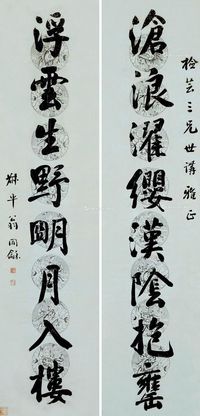 桧芸三兄世講雅正
滄浪濯纓漢陰抱甕
浮雲生野明月入樓
翁同龢